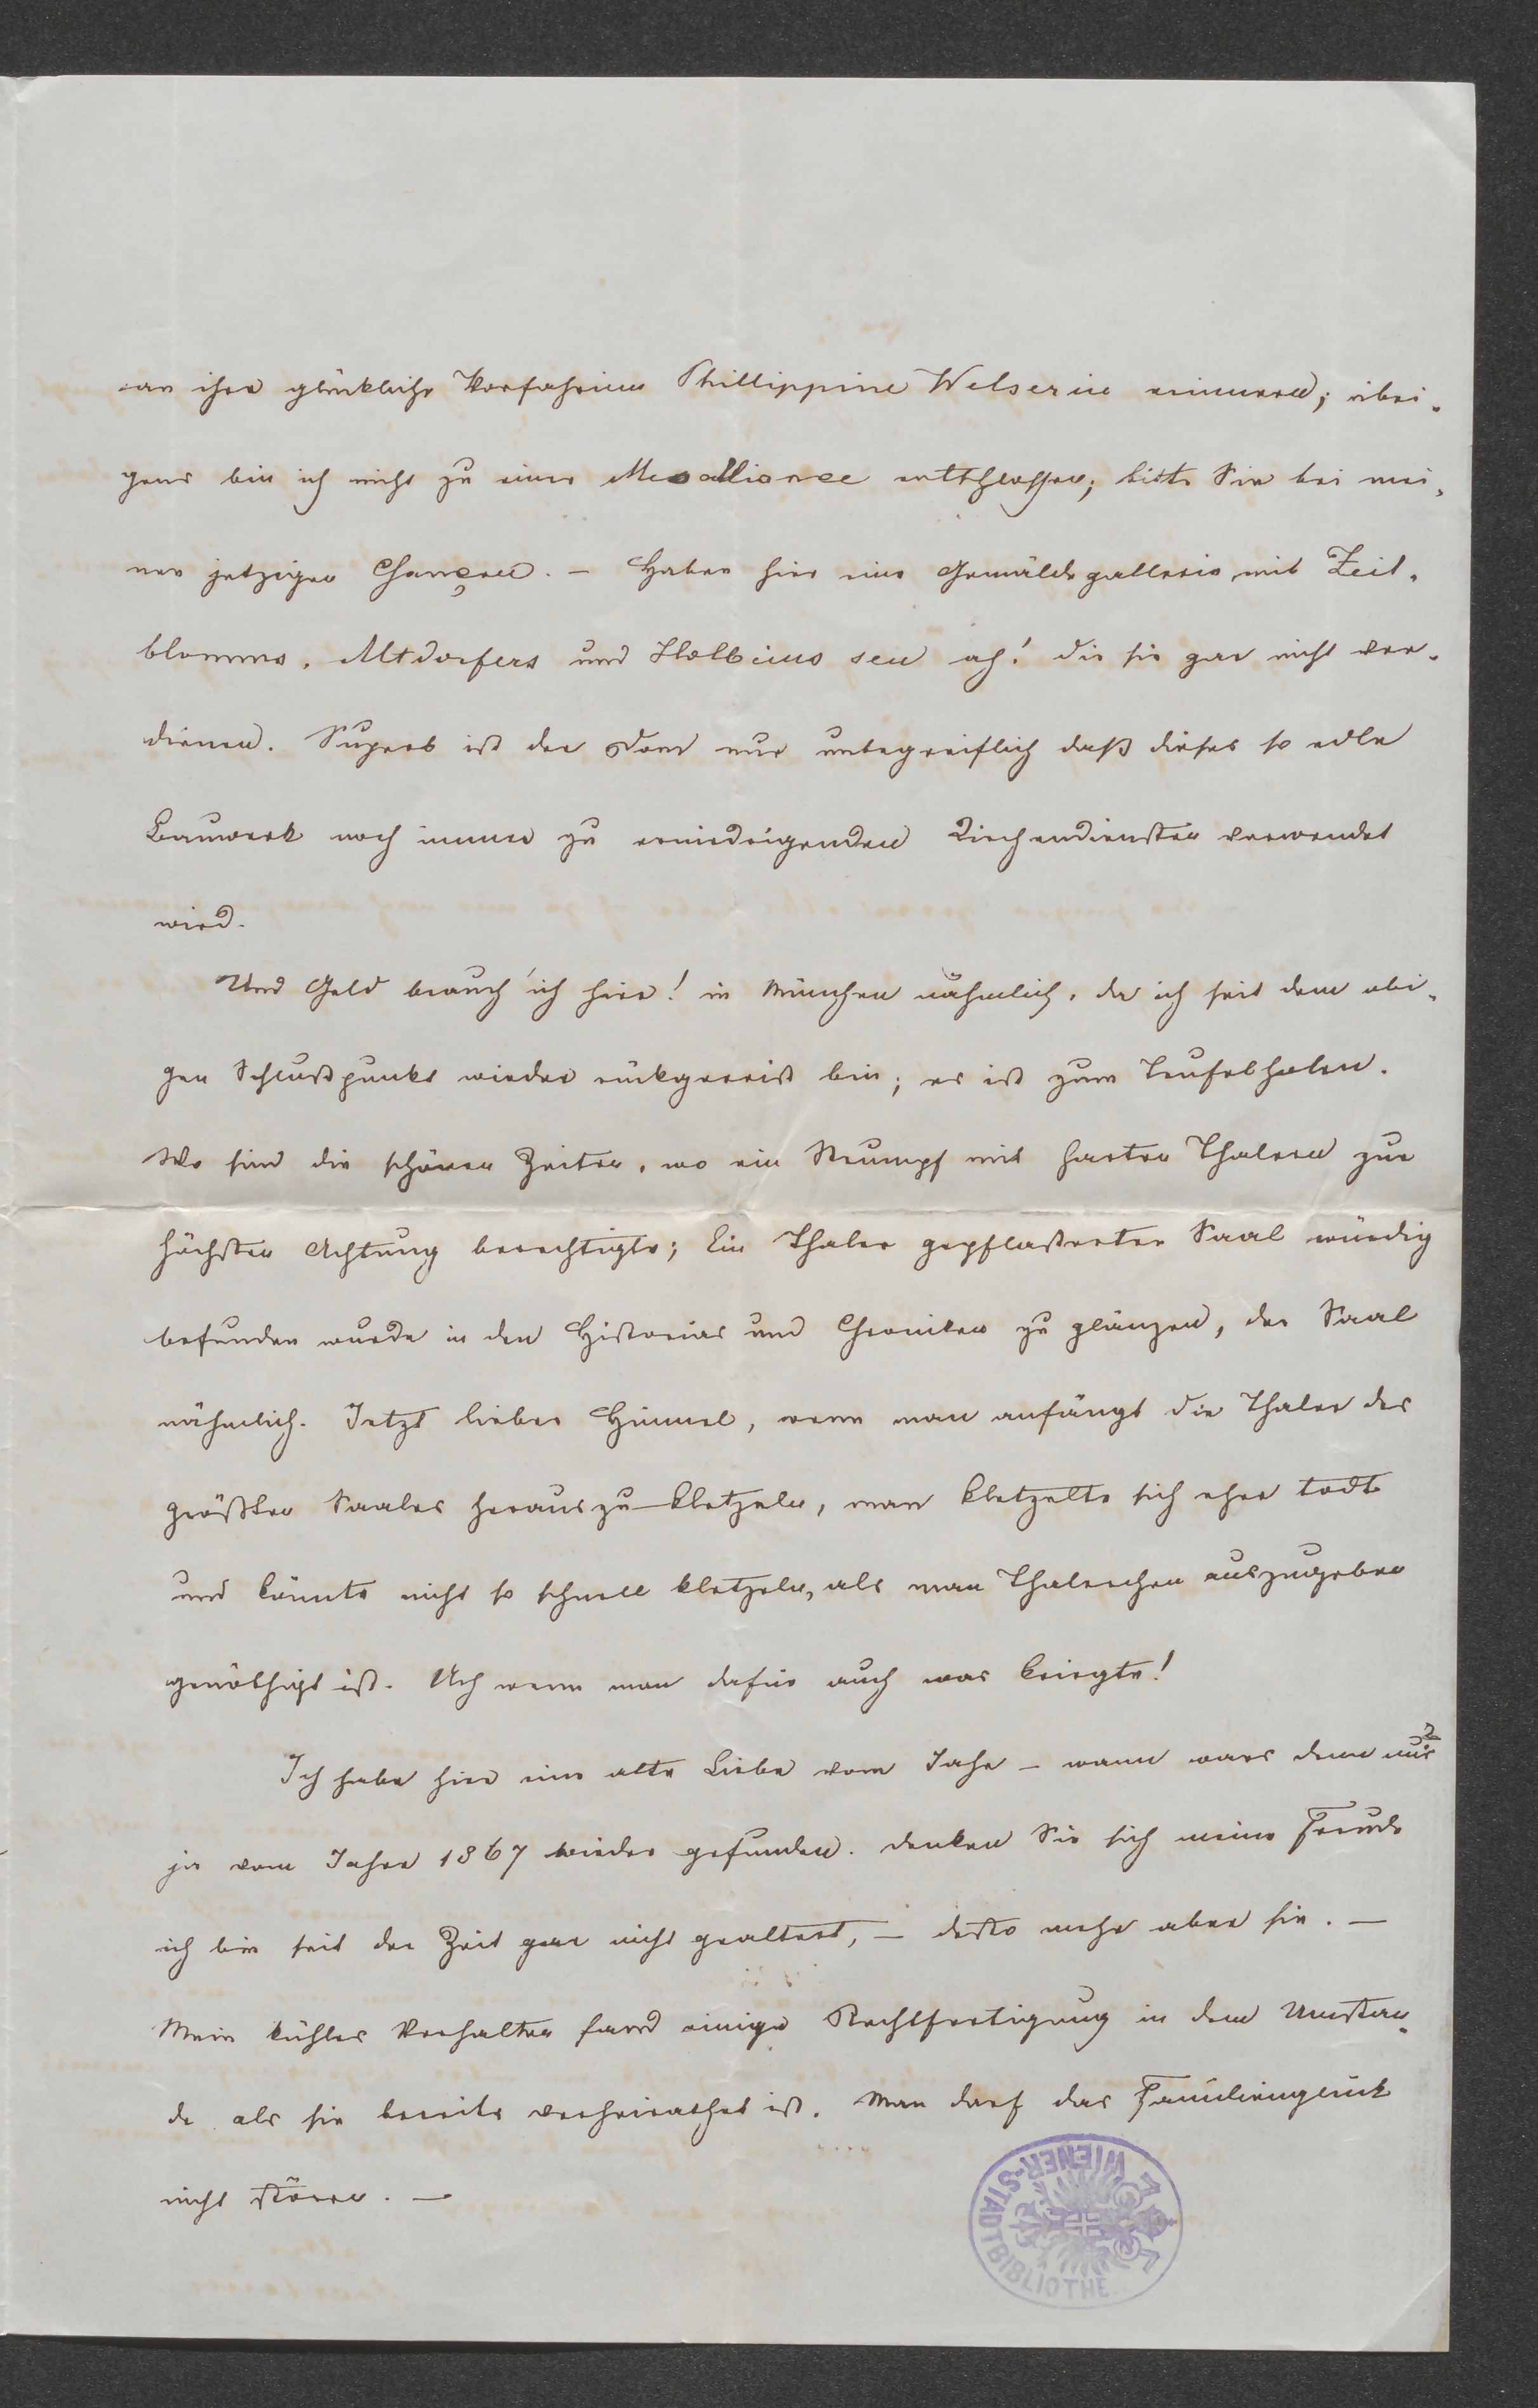 an ihre glückliche Vorfahrinn Phillippine Welserin erinnern; übri-
gens bin ich nicht zu einer Mesalliance entschlossen; bitte Sie bei mei-
nen jetzigen Chançen. – Haben hier eine Gemäldegallerie mit Zeit-
blomms, Altdorfers und Holbeins sen ach! die sie gar nicht ver-
dienen. Superb ist der Dom nur unbegreiflich daß dieses so edle
Bauwerk noch immer zu erniedrigenden Kirchendiensten verwendet
wird.
Und Geld brauch' ich hier! in München nähmlich, da ich seit dem obi-
gen Schlußpunkt wieder rückgereist bin; es ist zum Teufelholen.
Wo sind die schönen Zeiten, wo ein Strumpf mit harten Thalern zur
höchsten Achtung berechtigte; Ein Thaler gepflasterter Saal würdig
befunden wurde in den Historias und Chroniken zu glänzen, der Saal
nähmlich. Jetzt lieber Himmel, wenn man anfängt die Thaler des
größten Saales herauszu-kletzeln, man kletzelte sich eher todt
und könnte nicht so schnell kletzeln, als man Thalerchen auszugeben
genöthigt ist. Ach wenn man dafür auch was kriegte!
Ich habe hier eine alte Liebe vom Jahr – wann wars denn nur?
ja vom Jahre 1867 wieder gefunden. denken Sie sich meine Freude
ich bin seit der Zeit gar nicht gealtert, – desto mehr aber sie. –
Mein kühles Verhalten fand einige Rechtfertigung in dem Umstan-
de als sie bereits verheirathet ist. Man darf das Familienglück
nicht stören. –
WIENER-STADTBIBLIOTHE